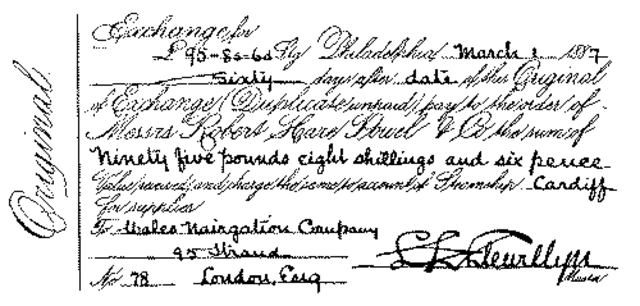 Original
Exchange for
£95-8s-6d Stg Philadelphia March 1 1887
Sixty days after date of this Original
of Exchange (Duplicate unpaid) pay to the order of
Messrs Robert Hare Powel & Co the sum of
Ninety five pounds eight shillings and six pence
Value received and charge the same to account of Steamship Cardiff
for supplies
To Wales Navigation Company
95 Strand
No 78 London, Eng
Master